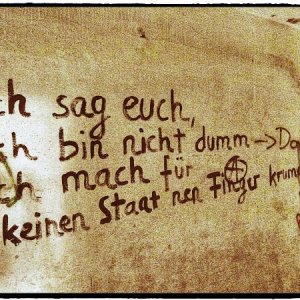 ch sag euch,
ch bin nicht dumm -> Do
ch mach für
keinen Staat nen Finger krum